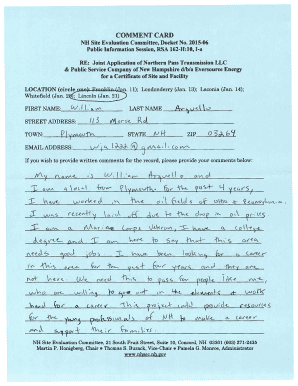 COMMENT CARD
NH Site Evaluation Committee, Docket No. 2015-06
Public Information Session, RSA 162-H:10, I-a
RE: Joint Application of Northern Pass Transmission LLC
& Public Service Company of New Hampshire d/b/a Eversource Energy
for a Certificate of Site and Facility
LOCATION (circle one) Franklin (Jan. 11); Londonderry (Jan. 13); Laconia (Jan. 14);
Whitefield (Jan. 20); Lincoln (Jan. 21)
FIRST NAME: William LAST NAME Arguello
STREET ADDRESS: 115 Morse Rd
TOWN: Plymouth STATE NH ZIP 03264
EMAIL ADDRESS wja1222@gmail.com
If you wish to provide written comments for the record, please provide your comments below:
My name is William Arguello and
I am a local from Plymouth for the past 4 years,
I have worked in the oil fields of Utah & Pennsylvania.
I was recently laid off due to the drop in oil prices
I am a Marine Corps Veteran, I have a college
degree and I am here to say that this area
needs good jobs. I have been looking for a career
in this area for the past four years and they are
not here. We need this to pass for people like me,
who are willing to go out in the elements & work
hard for a career. This project will provide resources
for the young professionals of NH to make a career
and support their families.
NH Site Evaluation Committee, 21 South Fruit Street, Suite 10, Concord, NH 03301 (603) 271-2435
Martin P. Honigberg, Chair • Thomas S. Burack, Vice-Chair • Pamela G. Monroe, Administrator
www.nhsec.nh.gov